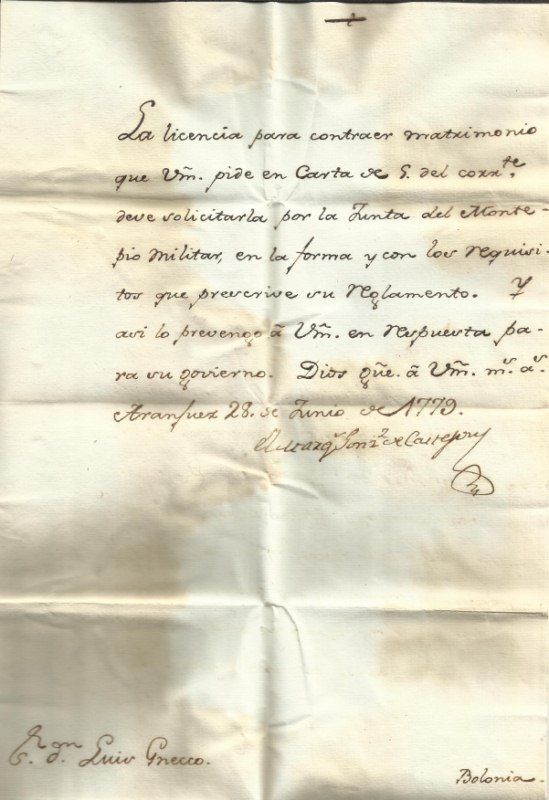 La licencia para contraer matrimonio
que Vm̃. pide en Carta de 5. del corr.te
deve solicitarla por la Junta del Monte-
pio Militar, en la forma y con los requisi-
tos que prescrive su Reglamento. Y
asi lo prevengo â Vm̃. en respuesta pa-
ra su govierno. Dios gũe. â Vm̃. m.s a.s
Aranjuez 28. de Junio de 1779.
El Marq.s Gonz.z de Castejon
S.r d.n Luis Gnecco.
Bolonia.